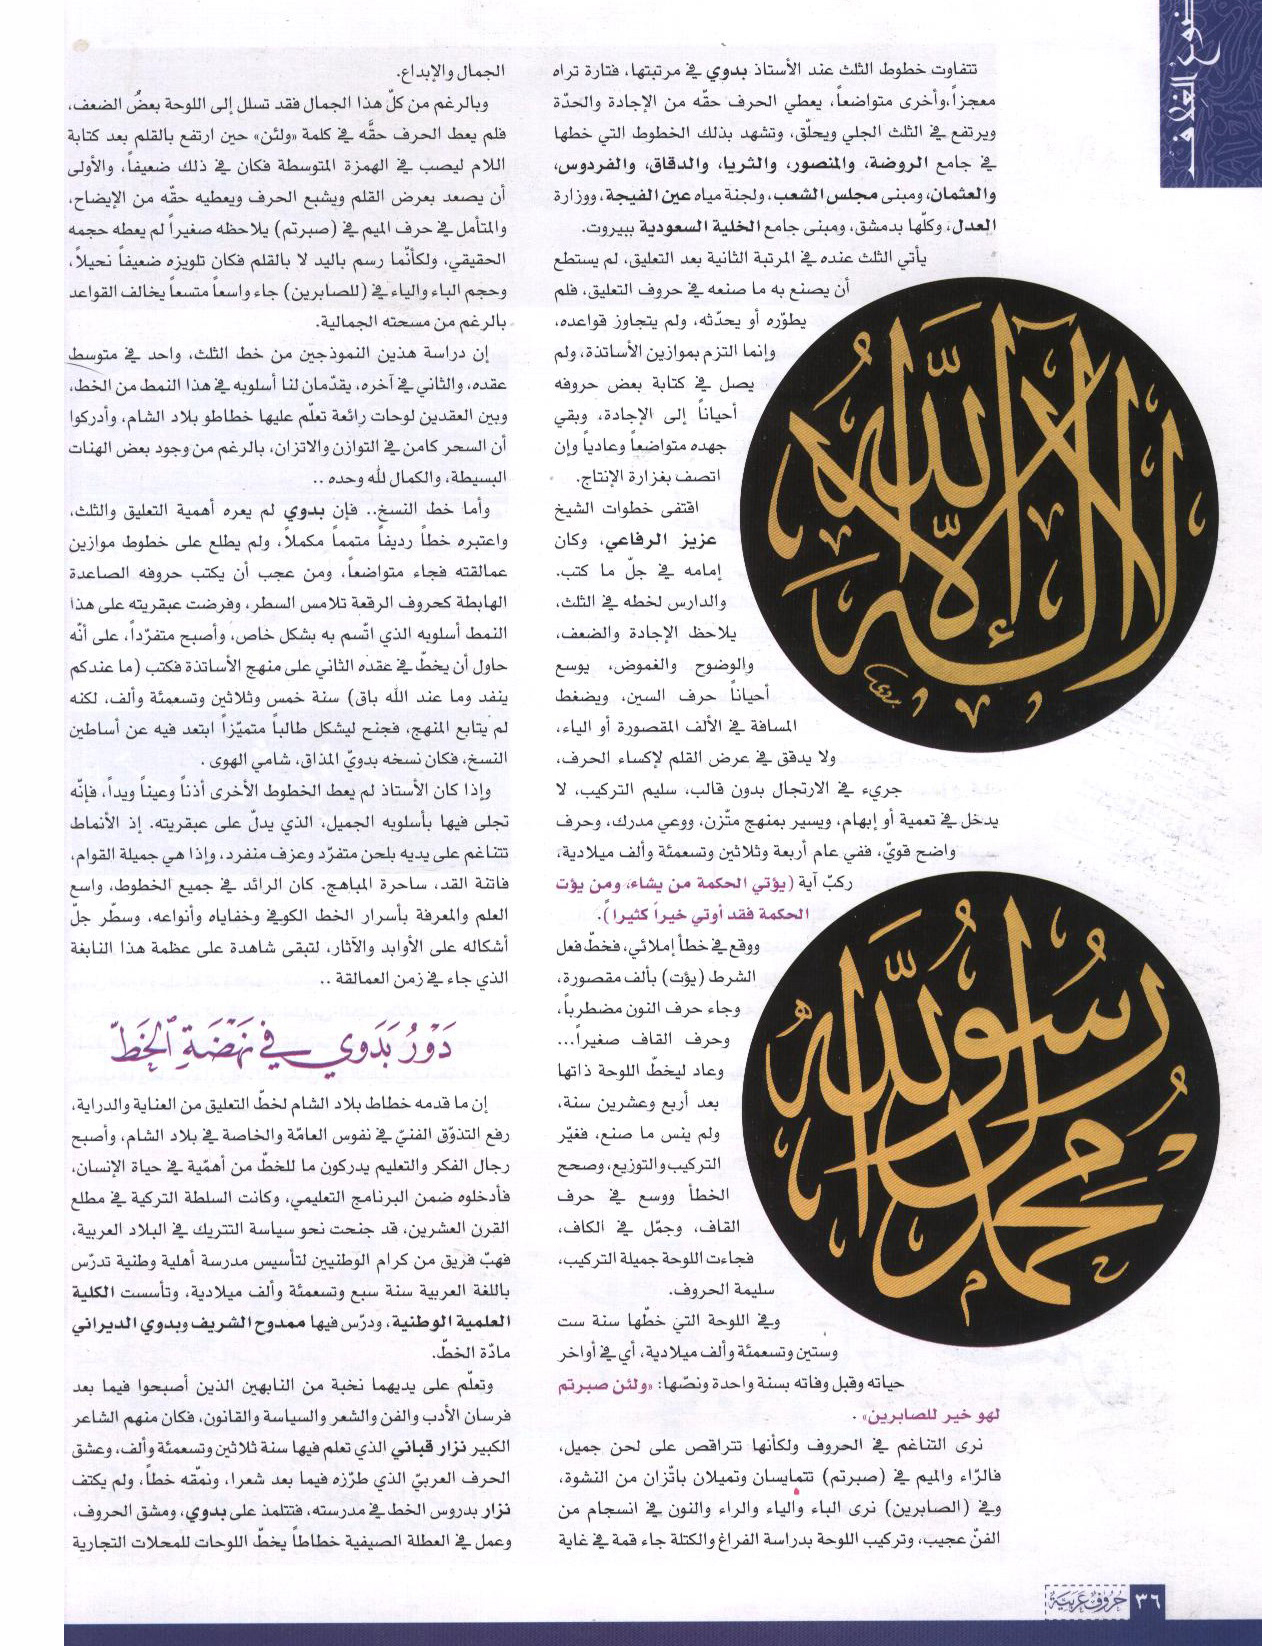 تتفاوت خطوط الثلث عند الأستاذ بدوي في مرتبتها، فتارة تراه
معجزاً،وأخرى متواضعاً، يعطي الحرف حقّه من الإجادة والحدّة
ويرتفع في الثلث الجلي ويحلّق، وتشهد بذلك الخطوط التي خطها
في جامع الروضة، والمنصور، والثريا، والدقاق، والفردوس،
والعثمان، ومبنى مجلس الشعب، ولجنة مياه عين الفيجة، ووزارة
العدل، وكلّها بدمشق، ومبنى جامع الخلية السعودية ببيروت.
يأتي الثلث عنده في المرتبة الثانية بعد التعليق، لم يستطع
أن يصنع به ما صنعه في حروف التعليق، فلم
يطوّره أو يحدّثه، ولم يتجاوز قواعده،
وإنما التزم بموازين الأساتذة، ولم
يصل في كتابة بعض حروفه
أحياناً إلى الإجادة، وبقي
جهده متواضعاً وعادياً وإن
اتصف بغزارة الإنتاج.
اقتفى خطوات الشيخ
عزيز الرفاعي، وكان
إمامه في جلّ ما كتب.
والدارس لخطه في الثلث،
يلاحظ الإجادة والضعف،
والوضوح والغموض، يوسع
أحياناً حرف السين، ويضغط
المسافة في الألف المقصورة أو الياء،
ولا يدقق في عرض القلم لإكساء الحرف،
جريء في الارتجال بدون قالب، سليم التركيب، لا
يدخل في تعمية أو إبهام، ويسير بمنهج متّزن، ووعي مدرك، وحرف
واضح قويّ، ففي عام أربعة وثلاثين وتسعمئة وألف ميلادية،
ركبّ آية (يؤتي الحكمة من يشاء، ومن يؤت
الحكمة فقد أوتي خيراً كثيرا).
ووقع في خطأ إملائي، فخطّ فعل
الشرط (يؤت) بألف مقصورة،
وجاء حرف النون مضطرباً،
وحرف القاف صغيراً...
وعاد ليخطّ اللوحة ذاتها
بعد أربع وعشرين سنة،
ولم ينس ما صنع، فغيّر
التركيب والتوزيع، وصحح
الخطأ ووسع في حرف
القاف، وجمّل في الكاف،
فجاءت اللوحة جميلة التركيب،
سليمة الحروف.
وفي اللوحة التي خطّها سنة ست
وستين وتسعمئة وألف ميلادية، أي في أواخر
حياته وقبل وفاته بسنة واحدة ونصّها: «ولئن صبرتم
لهو خير للصابرين» .
نرى التناغم في الحروف ولكأنها تتراقص على لحن جميل،
فالرّاء والميم في (صبرتم) تتمايسان وتميلان باتّزان من النشوة،
وفي (الصابرين) نرى الباء والياء والراء والنون في انسجام من
الفنّ عجيب، وتركيب اللوحة بدراسة الفراغ والكتلة جاء قمة في غاية
لا إله إلا الله
بدوي
محمد رسول الله
الجمال والإبداع.
وبالرغم من كلّ هذا الجمال فقد تسلل إلى اللوحة بعضُ الضعف،
فلم يعط الحرف حقَّه في كلمة «ولئن» حين ارتفع بالقلم بعد كتابة
اللام ليصب في الهمزة المتوسطة فكان في ذلك ضعيفاً، والأولى
أن يصعد بعرض القلم ويشبع الحرف ويعطيه حقّه من الإيضاح،
والمتأمل في حرف الميم في (صبرتم) يلاحظه صغيراً لم يعطه حجمه
الحقيقي، ولكأنّما رسم باليد لا بالقلم فكان تلويزه ضعيفاً نحيلاً،
وحجم الباء والياء في (للصابرين) جاء واسعاً متسعاً يخالف القواعد
بالرغم من مسحته الجمالية.
إن دراسة هذين النموذجين من خط الثلث، واحد في متوسط
عقده، والثاني في آخره، يقدّمان لنا أسلوبه في هذا النمط من الخط،
وبين العقدين لوحات رائعة تعلّم عليها خطاطو بلاد الشام، وأدركوا
أن السحر كامن في التوازن والاتزان، بالرغم من وجود بعض الهنات
البسيطة، والكمال لله وحده ..
وأما خط النسخ.. فإن بدوي لم يعره أهمية التعليق والثلث،
واعتبره خطاً رديفاً متمماً مكملاً، ولم يطلع على خطوط موازين
عمالقته فجاء متواضعاً، ومن عجب أن يكتب حروفه الصاعدة
الهابطة كحروف الرقعة تلامس السطر، وفرضت عبقريته على هذا
النمط أسلوبه الذي اتّسم به بشكل خاص، وأصبح متفرّداً، على أنّه
حاول أن يخطّ في عقده الثاني على منهج الأساتذة فكتب (ما عندكم
ينفد وما عند الله باق) سنة خمس وثلاثين وتسعمئة وألف، لكنه
لم يتابع المنهج، فجنح ليشكل طالباً متميّزاً ابتعد فيه عن أساطين
النسخ، فكان نسخه بدويّ المذاق، شامي الهوى .
وإذا كان الأستاذ لم يعط الخطوط الأخرى أذناً وعيناً ويداً، فإنّه
تجلى فيها بأسلوبه الجميل، الذي يدلّ على عبقريته. إذ الأنماط
تتناغم على يديه بلحن متفرّد وعزف منفرد، وإذا هي جميلة القوام،
فاتنة القد، ساحرة المباهج. كان الرائد في جميع الخطوط، واسع
العلم والمعرفة بأسرار الخط الكوفي وخفاياه وأنواعه، وسطّر جلّ
أشكاله على الأوابد والآثار، لتبقى شاهدة على عظمة هذا النابغة
الذي جاء في زمن العمالقة ..
دَوْرُ بَدَوي في نَهْضَةِ الخَطّ
إن ما قدمه خطاط بلاد الشام لخطّ التعليق من العناية والدراية،
رفع التذوّق الفنيّ في نفوس العامّة والخاصة في بلاد الشام، وأصبح
رجال الفكر والتعليم يدركون ما للخطّ من أهمّية في حياة الإنسان،
فأدخلوه ضمن البرنامج التعليمي، وكانت السلطة التركية في مطلع
القرن العشرين، قد جنحت نحو سياسة التتريك في البلاد العربية،
فهبّ فريق من كرام الوطنيين لتأسيس مدرسة أهلية وطنية تدرّس
باللغة العربية سنة سبع وتسعمئة وألف ميلادية، وتأسست الكلية
العلمية الوطنية، ودرّس فيها ممدوح الشريف وبدوي الديراني
مادّة الخطّ.
وتعلّم على يديهما نخبة من النابهين الذين أصبحوا فيما بعد
فرسان الأدب والفن والشعر والسياسة والقانون، فكان منهم الشاعر
الكبير نزار قباني الذي تعلم فيها سنة ثلاثين وتسعمئة وألف، وعشق
الحرف العربيّ الذي طرّزه فيما بعد شعرا، ونمقّه خطاً، ولم يكتف
نزار بدروس الخط في مدرسته، فتتلمذ على بدوي، ومشق الحروف،
وعمل في العطلة الصيفية خطاطاً يخطّ اللوحات للمحلات التجارية
حُرُوفٌ عَرَبِيَّة
٣٦